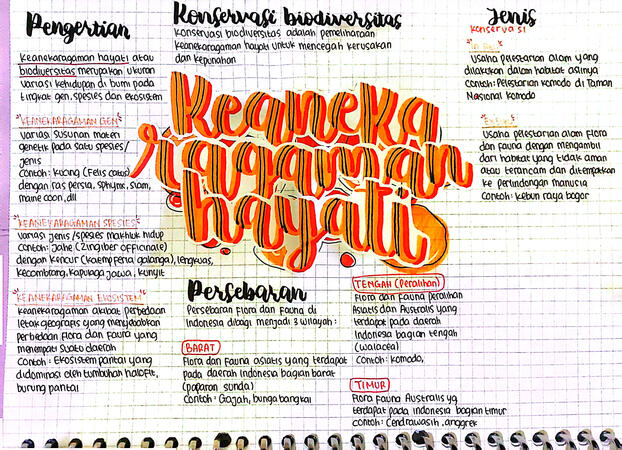 Pengertian
Keanekaragaman hayati atau
biodiversitas merupakan ukuran
variasi kehidupan di bumi pada
tingkat gen, spesies dan ekosistem
KEANEKARAGAMAN GEN
variasi susunan materi
genetik pada satu spesies/
jenis
Contoh: kucing (Felis catus)
dengan ras persia, sphynx, siam,
maine coon, dll
KEANEKARAGAMAN SPESIES
variasi jenis/spesies makhluk hidup
Contoh: Jahe (Zingiber officinale)
dengan kencur (Kaempferia galanga), lengkuas,
kecombrang, kapulaga jawa, kunyit
KEANEKARAGAMAN EKOSISTEM
keanekaragaman akibat perbedaan
letak geografis yang menyebabkan
perbedaan flora dan fauna yang
menempati suatu daerah
Contoh: Ekosistem pantai yang
didominasi oleh tumbuhan halofit,
burung pantai
Konservasi biodiversitas
Konservasi biodiversitas adalah pemeliharaan
keanekaragaman hayati untuk mencegah kerusakan
dan kepunahan
Keaneka
ragaman
hayati
Persebaran
Persebaran flora dan fauna di
Indonesia dibagi menjadi 3 wilayah:
BARAT
Flora dan Fauna asiatis yang terdapat
pada daerah Indonesia bagian barat
(paparan sunda)
Contoh: Gajah, bunga bangkai
TENGAH (Peralihan)
Flora dan fauna peralihan
Asiatis dan Australis yang
terdapat pada daerah
Indonesia bagian tengah
(walacea)
Contoh: komodo,
TIMUR
Flora fauna Australis yg
terdapat pada Indonesia bagian timur
contoh: Cendrawasih, anggrek
Jenis
konservasi
Usaha pelestarian alam yang
dilakukan dalam habitat aslinya
Contoh: Pelestarian komodo di Taman
Nasional Komodo
Usaha pelestarian alam flora
dan fauna dengan mengambil
dari habitat yang tidak aman
atau terancam dan ditempatkan
ke perlindungan manusia
Contoh: kebun raya bogor